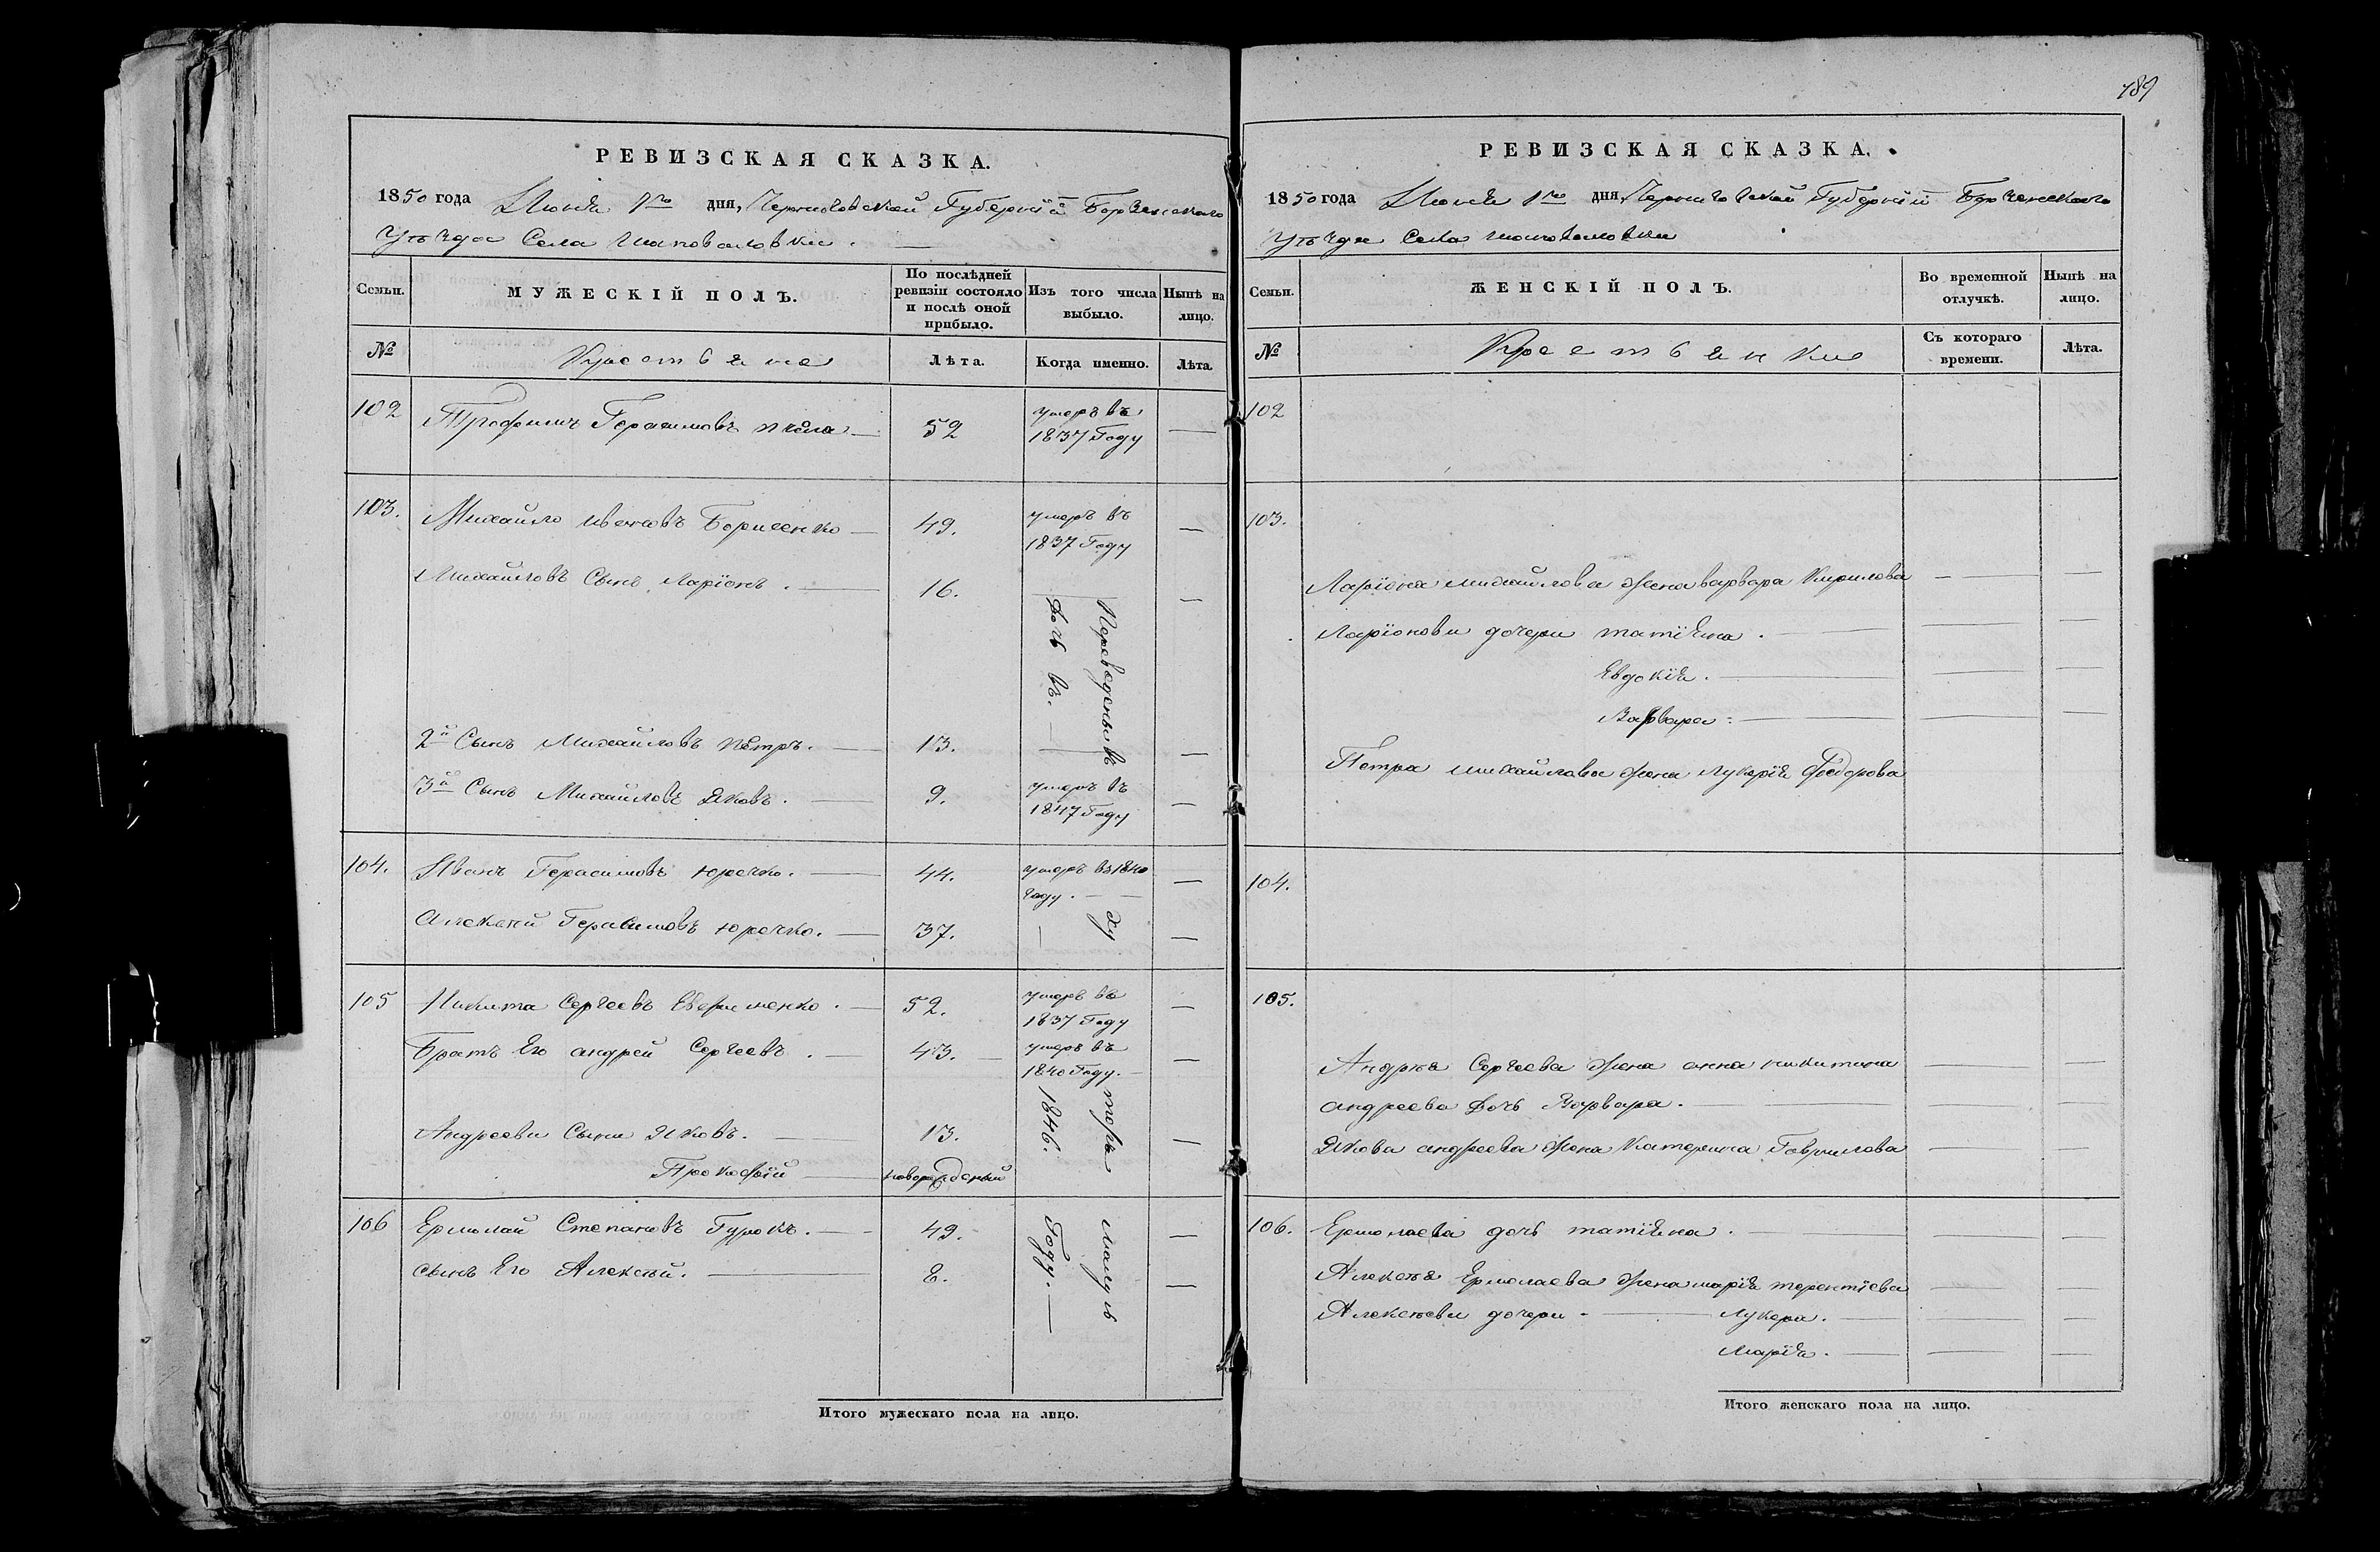 189
РЕВИЗСКАЯ СКАЗКА.
1850 года Июня 1го дня, Черниговской Губернїи Борзенскаго
Уѣзда Села Шаповаловки.
Семьи. МУЖЕСКІЙ ПОЛЪ. По послѣдней ревизіи состояло и послѣ оной прибыло. Изъ того числа выбыло. Нынѣ на лицо.
№ Крестьяне Лѣта. Когда именно. Лѣта.
102 Трофимъ Герасимовъ 52 умеръ въ 1837 Году
103. Михайло Ивановъ Борисенко 49. умеръ въ 1837 Году
Михайловъ Сынъ Ларіонъ. 16.
2й Сынъ Михайловъ Петръ. 13.
3й Сынъ Михайловъ Яковъ. 9. умеръ въ 1847 Году
Переведены въ
104. Иванъ Герасимовъ Юречко. 44. умеръ въ 1840 Году.
Алексѣй Герасимовъ Юречко. 37.
105 Никита Сергеевъ 52. умеръ въ 1837 Году
Братъ Его Андрей Сергеевъ. 43. умеръ въ 1840 Году.
Андреевы Сыны Яковъ. 13.
Прокофїй новорожденый
1846.
106 Ермолай Степановъ Гурокъ. 49.
Сынъ Его Алексѣй. 8.
Году.
Итого мужескаго пола на лицо.
РЕВИЗСКАЯ СКАЗКА.
1850 года Июня 1го дня, Черниговской Губернїи Борзенскаго
Уѣзда Села Шаповаловки
Семьи. ЖЕНСКІЙ ПОЛЪ. Во временной отлучкѣ. Нынѣ на лицо.
№ Крестьянки Съ котораго времени. Лѣта.
102
103.
Ларіона Михайлова Жена Варвара Кирилова
Ларїоновы дочери Татїяна.
Евдокїя.
Варвара.
Петра Михайлова Жена Лукерїя Федорова
104.
105.
Андрея Сергеева Жена Анна Никитина
Андреева Дочь Варвара.
Якова Андреева Жена Катерина Гаврилова
106. Ермолаева дочь Татїяна.
Алексѣя Ермолаева Жена Марїя Терентїева
Алексѣевы дочери Лукеря.
Марїя.
Итого женскаго пола на лицо.